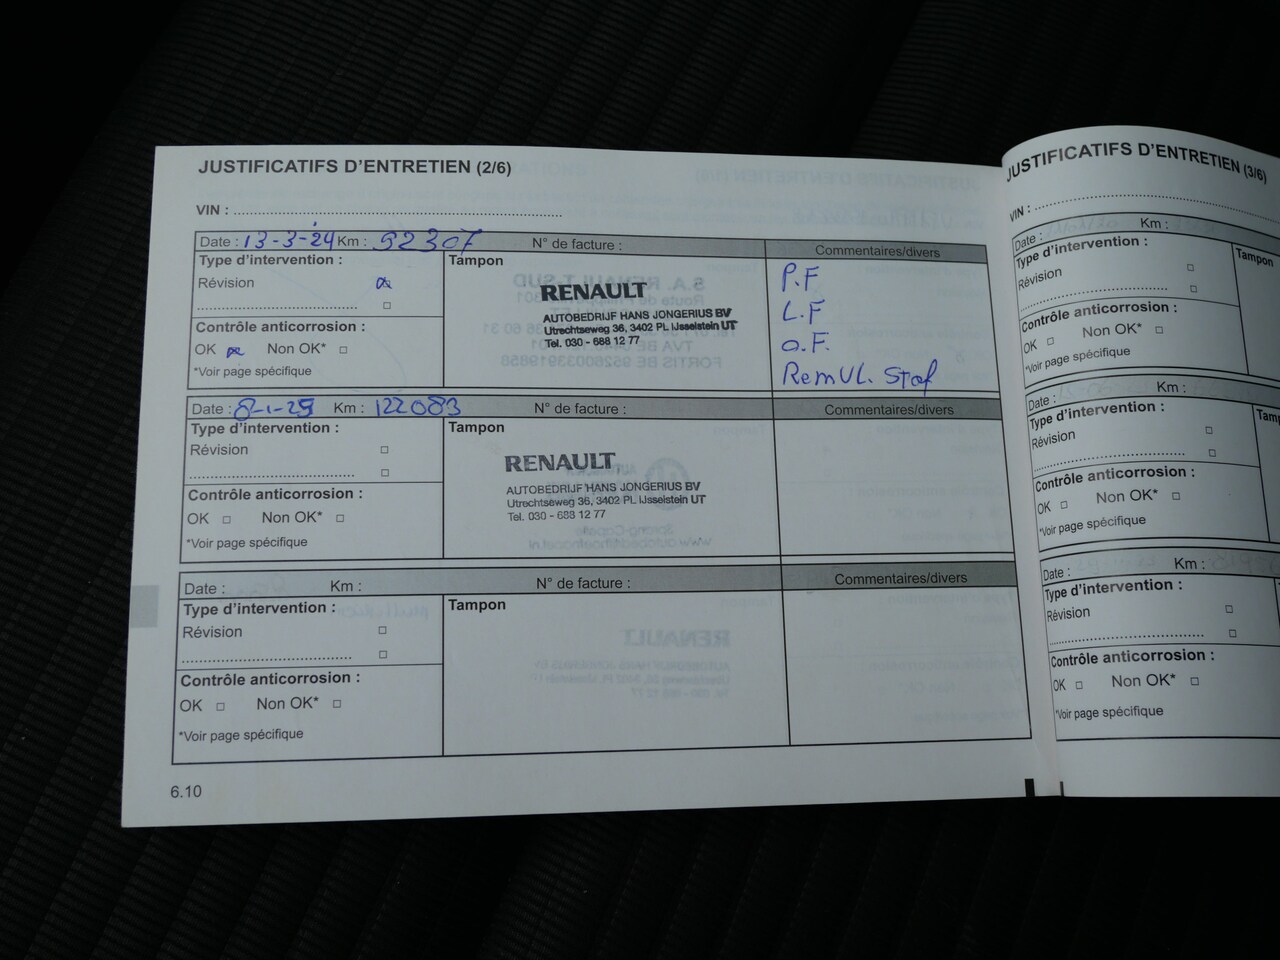 JUSTIFICATIFS D'ENTRETIEN (2/6)
VIN :
Date : 13-3-24 Km : 92307 N° de facture : Commentaires/divers
Type d'intervention :
Révision
Contrôle anticorrosion :
OK Non OK*
*Voir page spécifique
Tampon
RENAULT
AUTOBEDRIJF HANS JONGERIUS BV
Utrechtseweg 36, 3402 PL IJsselstein UT
Tel. 030 - 688 12 77
P.F
L.F
O.F.
RemVL. Stof
Date : 8-1-25 Km : 122083 N° de facture : Commentaires/divers
Type d'intervention :
Révision
Contrôle anticorrosion :
OK Non OK*
*Voir page spécifique
Tampon
RENAULT
AUTOBEDRIJF HANS JONGERIUS BV
Utrechtseweg 36, 3402 PL IJsselstein UT
Tel. 030 - 688 12 77
Date : Km : N° de facture : Commentaires/divers
Type d'intervention :
Révision
Contrôle anticorrosion :
OK Non OK*
*Voir page spécifique
Tampon
6.10
JUSTIFICATIFS D'ENTRETIEN (3/6)
VIN :
Date : Km :
Type d'intervention :
Révision
Contrôle anticorrosion :
OK Non OK*
*Voir page spécifique
Tampon
Date : Km :
Type d'intervention :
Révision
Contrôle anticorrosion :
OK Non OK*
*Voir page spécifique
Tamp
Date : Km :
Type d'intervention :
Révision
Contrôle anticorrosion :
OK Non OK*
*Voir page spécifique